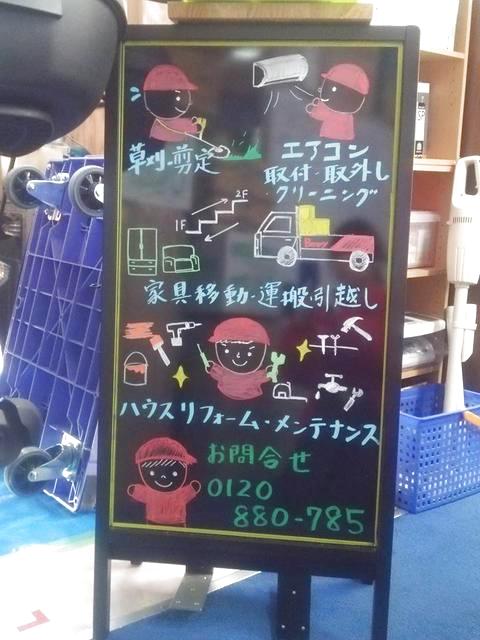 草刈・剪定
エアコン
取付・取外し
クリーニング
1F
2F
家具移動・運搬・引越し
ハウスリフォーム・メンテナンス
お問合せ
0120
880-785